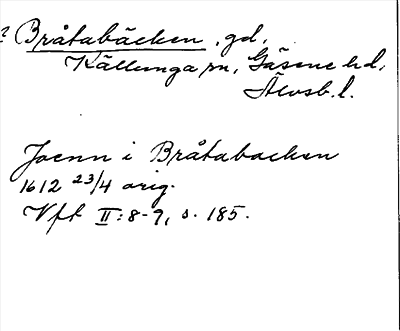 ? Bråtabäcken, gd,
Källunga sn, Gäsene hd,
Älvsb. l.
Joenn i Bråtabacken
1612 23/4 orig.
Vft II:8-9, s. 185.